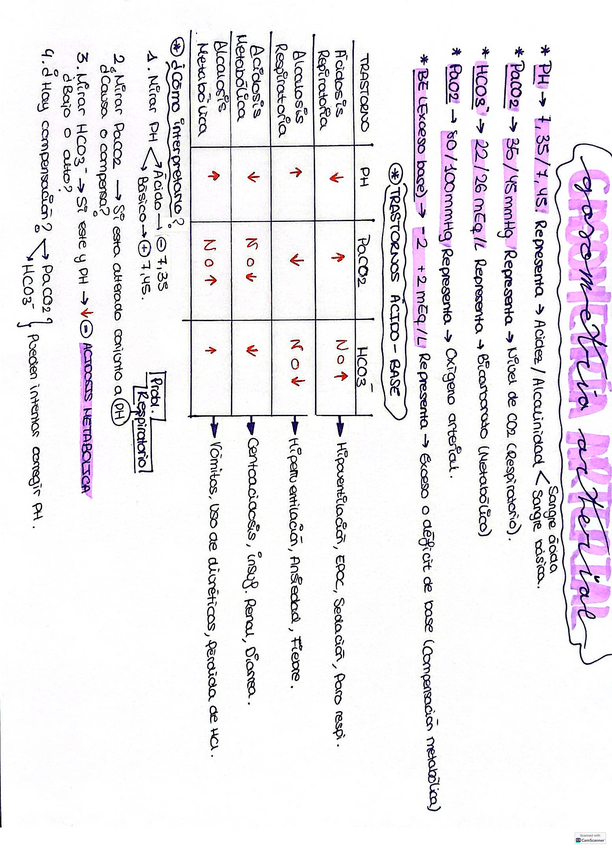 GASOMETRIA ARTERIAL
gasometria arterial
* PH → 7,35/7,45. Representa → Acidez/Alcalinidad < Sangre ácida
Sangre básica.
* PaCO2 → 35/45mmHg Representa → Nivel de CO2 (Respiratorio).
* HCO3⁻ → 22/26 mEq/L Representa → Bicarbonato (Metabólico)
* PaO2 → 80/100mmHg Representa → Oxígeno arterial.
* BE (Exceso base) → -2 +2 mEq/L Representa → Exceso o déficit de base (Compensación metabólica)
* TRASTORNOS ÁCIDO-BASE
TRASTORNO PH PaCO2 HCO3⁻
Acidosis Respiratoria ↓ ↑ N o ↑ → Hipoventilación, EPOC, Sedación, Paro respi.
Alcalosis Respiratoria ↑ ↓ N o ↓ → Hiperventilación, Ansiedad, Fiebre.
Acidosis Metabólica ↓ N o ↓ ↓ → Cetoacidosis, insuf. Renal, Diarrea.
Alcalosis Metabólica ↑ N o ↑ ↑ → Vómitos, uso de diuréticos, pérdida de HCl.
* ¿Cómo interpretarlo?
1. Mirar PH < Ácido → - 7,35
Básico → + 7,45.
2. Mirar PaCO2 → Si esta alterado contrario a PH
¿Causa o compensa?
Prob. Respiratorio
3. Mirar HCO3⁻ → Si este y PH → ↓ - ACIDOSIS METABOLICA
¿Bajo o alto?
4. ¿Hay compensación? < PaCO2?
HCO3⁻
} Pueden intentar corregir PH.
Scanned with
CamScanner